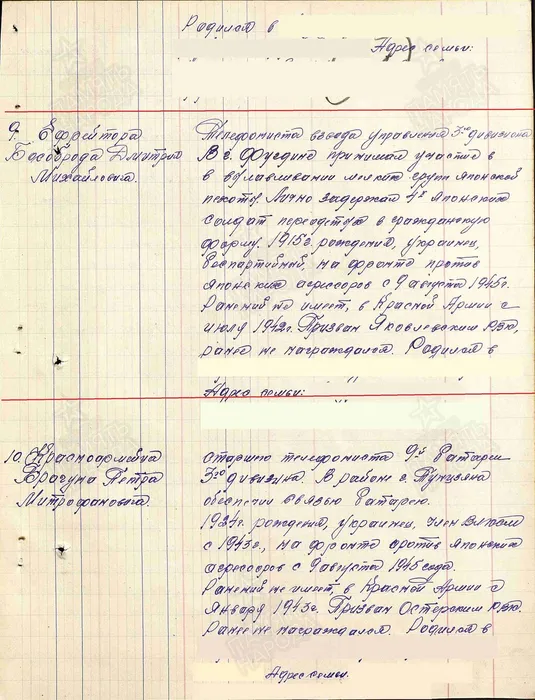 Родился в
Адрес семьи:
9. Ефрейтора
Басоброда Дмитрия
Михайловича.
Телефониста взвода управления 3го дивизиона
В г. Фугдине принимал участие в
в вылавливании мелких групп Японской
пехоты. Лично задержал 4х Японских
солдат переодетых в гражданскую
форму. 1915г. рождения, украинец,
беспартийный, на фронте против
Японских агрессоров с 9 августа 1945г.
Ранений не имеет, в Красной Армии с
июля 1942г. Призван Яковлевским РВК,
ранее не награждался. Родился в
Адрес семьи:
10. Красноармейца
Брагуна Петра
Митрофановича.
старшего телефониста 9й батареи
3го дивизиона. В районе г.
обеспечил связью батарею.
1924г. рождения, украинец, член ВЛКСМ
с 1943г., на фронте против Японских
агрессоров с 9 августа 1945 года.
Ранений не имеет, в Красной Армии с
Января 1943г. Призван Остерским РВК.
Ранее не награждался. Родился в
Адрес семьи.